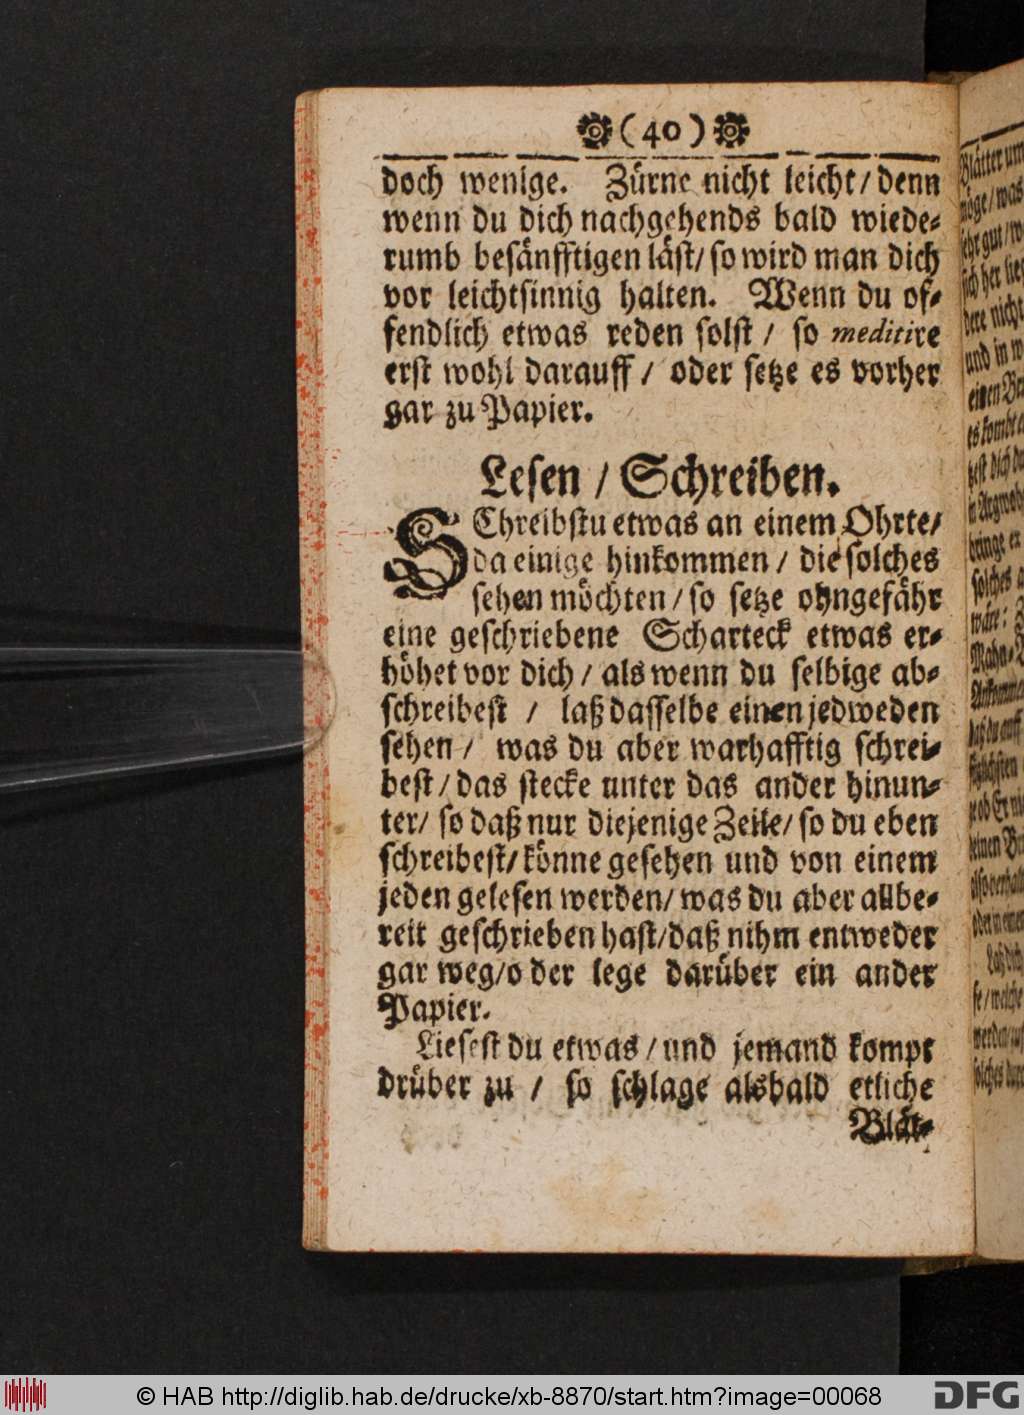 (40)
doch wenige. Zürne nicht leicht/ denn
wenn du dich nachgehends bald wiede-
rumb besänfftigen läst/ so wird man dich
vor leichtsinnig halten. Wenn du of-
fendlich etwas reden solst / so meditire
erst wohl darauff / oder setze es vorher
gar zu Papier.
Lesen / Schreiben.
SChreibstu etwas an einem Ohrte/
da einige hinkommen / die solches
sehen möchten / so setze ohngefähr
eine geschriebene Scharteck etwas er-
höhet vor dich / als wenn du selbige ab-
schreibest / laß dasselbe einen jedweden
sehen / was du aber warhafftig schrei-
best / das stecke unter das ander hinun-
ter/ so daß nur diejenige Zeile/ so du eben
schreibest/ könne gesehen und von einem
jeden gelesen werden/ was du aber allbe-
reit geschrieben hast/ daß nihm entweder
gar weg/ o der lege darüber ein ander
Papier.
Liesest du etwas / und jemand kompt
drüber zu / so schlage alsbald etliche
Blät-
Blätter um
möge / was
sehr gut / w
sich her lieg
dere nicht
und in w
einen Be
es kombt e
in Argwoh
bringe er
solches
wäre:
Ankomme
einen Br
oder in einer
Laß dich
se / welche
werden
solches durc
© HAB http://diglib.hab.de/drucke/xb-8870/start.htm?image=00068
DFG